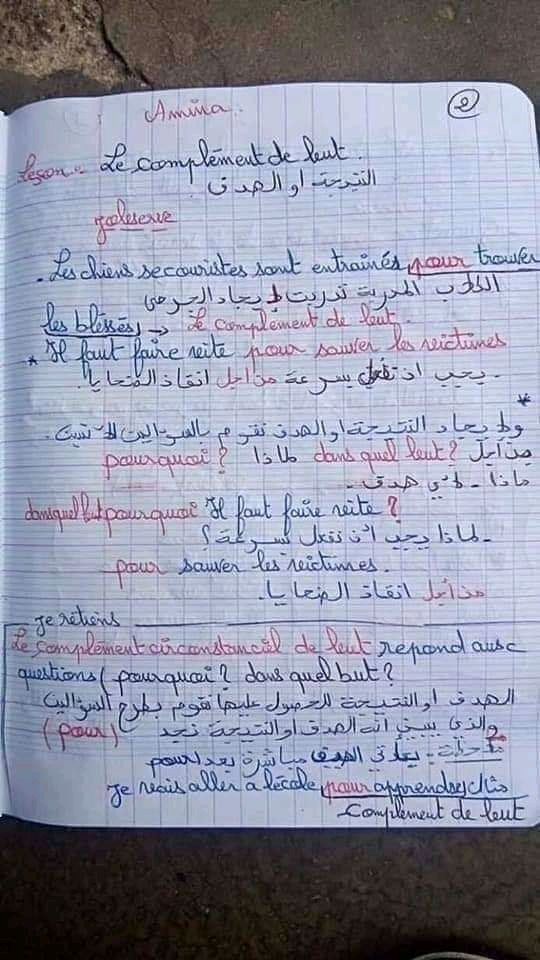 Amina
2
Leçon: Le complément de but.
النتيجة او الهدف!
j'observe
. Les chiens secouristes sont entrainés pour trouver
الكلاب المدربة تدربت لإيجاد الجرحى
les bléssés → Le complément de but.
* Il faut faire vite pour sauver les victimes
- يجب ان تفعل بسرعة من اجل انقاذ الضحايا.
*
ولإيجاد النتيجة او الهدف نقوم بالسؤالين
pourquoi? لماذا dans quel but? من أجل
ماذا - لأي هدف -
dans quel but pourquoi Il faut faire vite?
- لماذا يجب أن نفعل بسرعة؟
pour sauver les victimes.
من أجل انقاذ الضحايا.
je retiens
Le complément circonstanciel de but repond aux
questions (pourquoi? dans quel but?
الهدف او النتيجة للحصول عليها نقوم بطرح السؤالين
والذي يبين انه الهدف او النتيجة نجد (pour)
ملاحظة - يأتي الهدف مباشرة بعد pour
مثال je vais aller à l'école pour apprendre
Complément de but